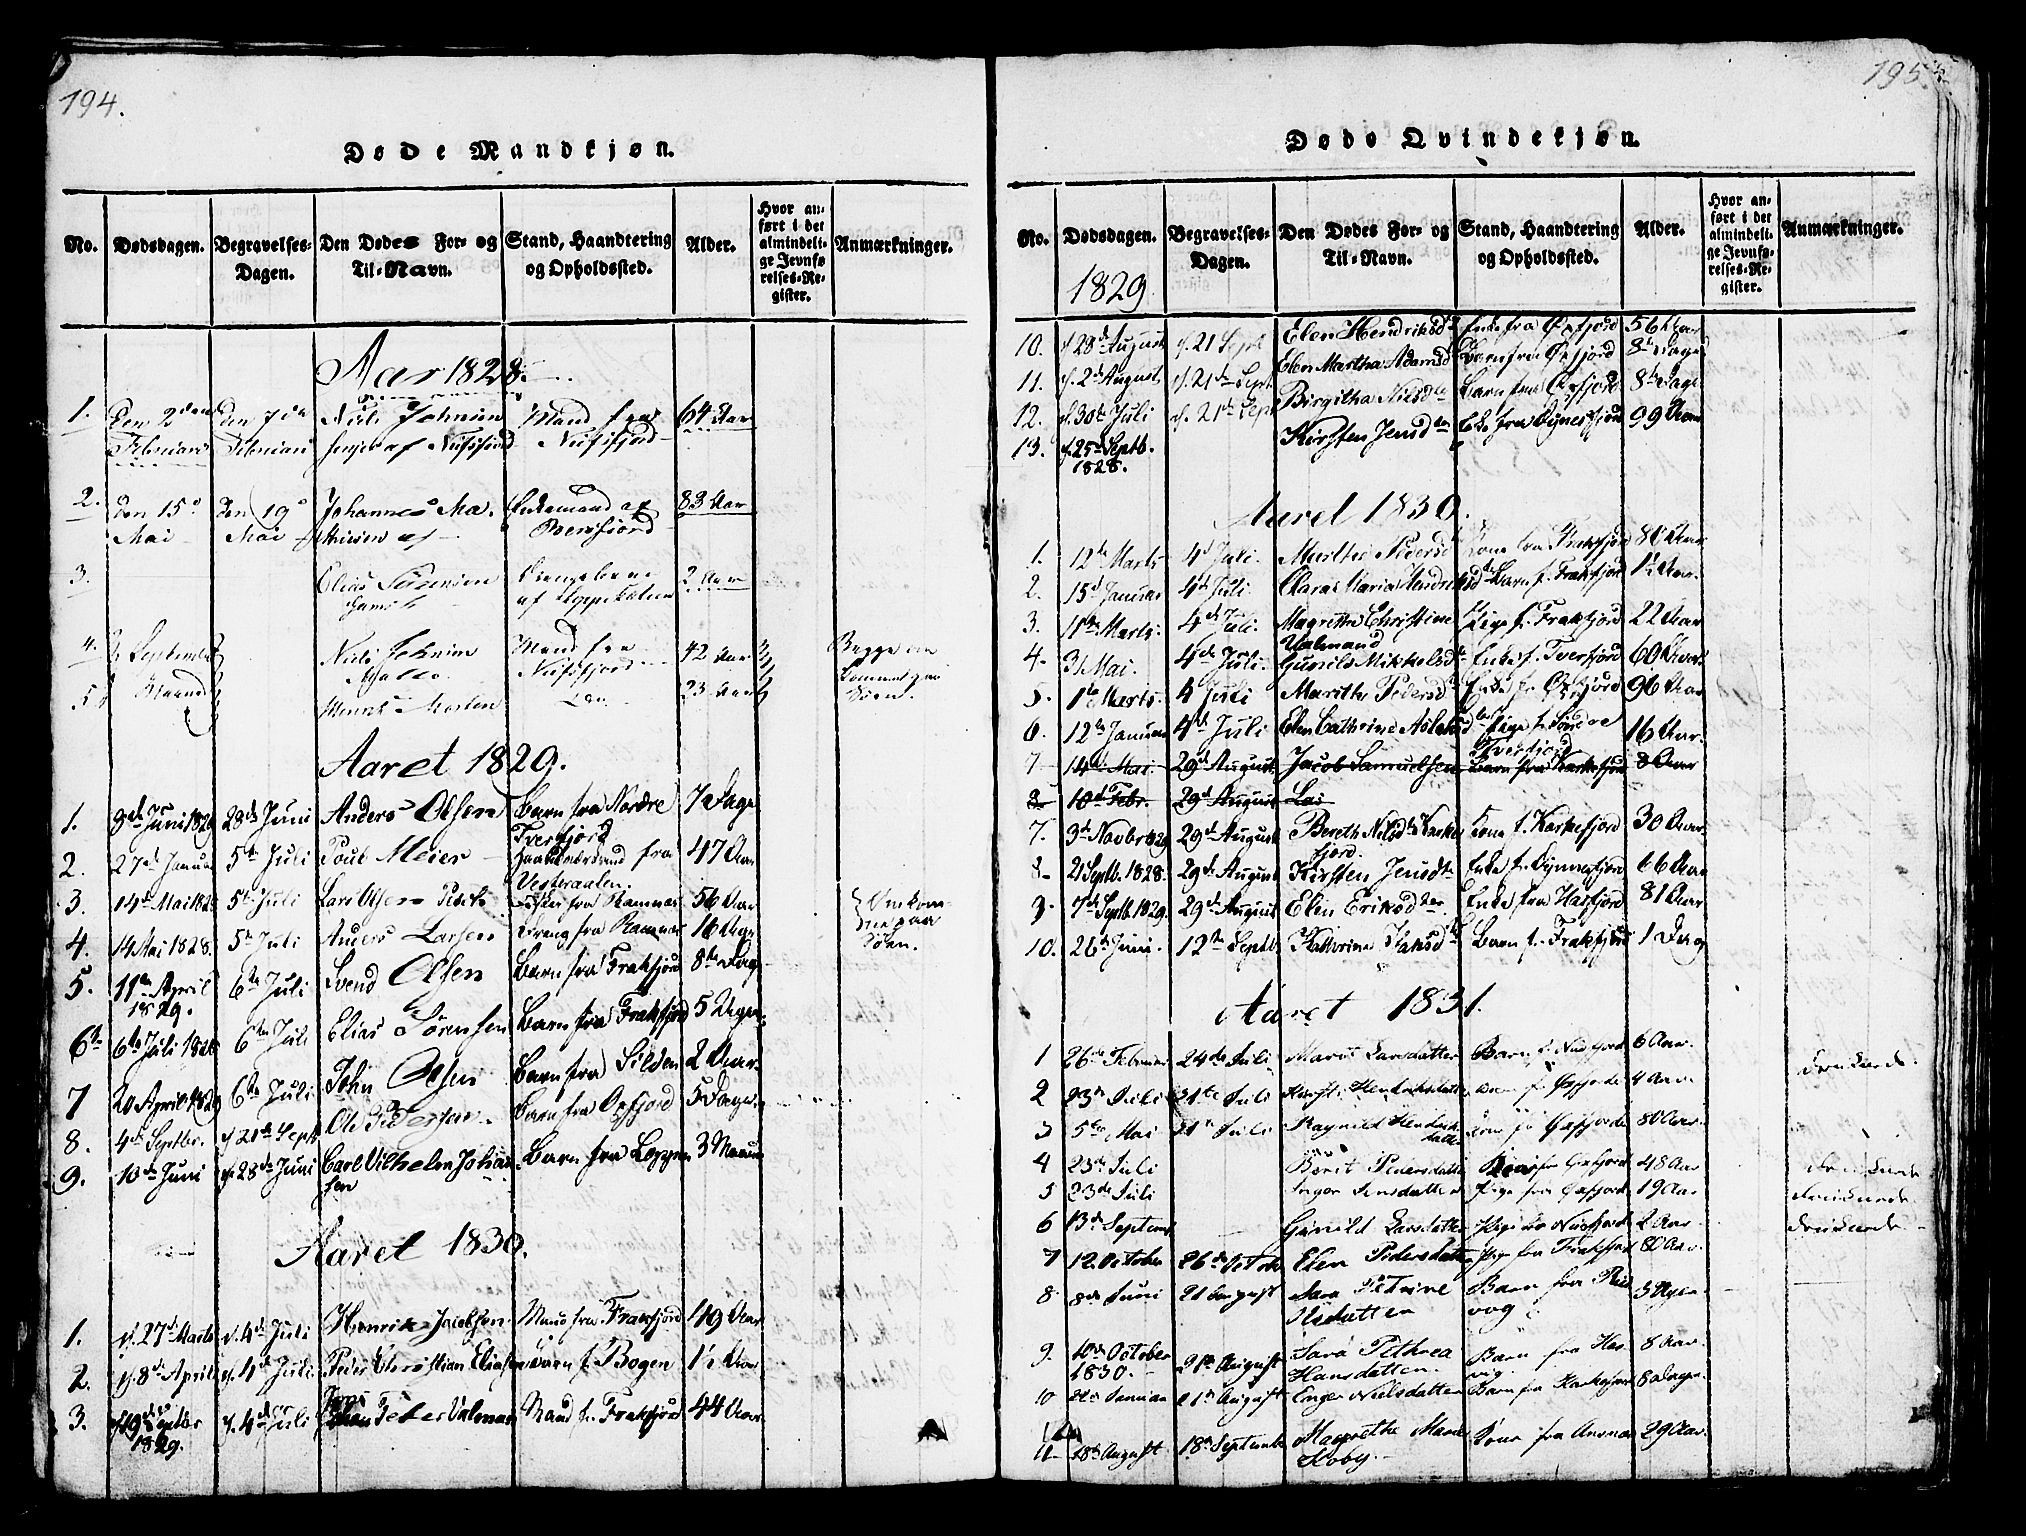 194.
Døde Mandkjøn.
No. Dødsdagen. Begravelses-Dagen. Den Dødes For- og Til-Navn. Stand, Haandtering og Opholdssted. Alder. Hvor anført i det almindelige Jevnførelses-Register. Anmærkninger.
Aar 1828.
1. Den 2den Februari Den 7de Februari Niels Johnsen af Nufsfjord Mand fra Nufsfjord 64 Aar
2. Den 15d Mai Den 19d Mai Johannes Mathiesen af Enkemand af Øxenfjord 83 Aar
3. Elias Sørensen Drengebarn af 2 Aar
4. September Niels Johnsen Mand fra Nufsfjord 42 Aar Begge om
5. Maaned Morten 23 Aar
Aaret 1829.
1. 8de Juni 1829 28de Juni Anders Olsen Barn fra Nordre Tverfjord 7 Dage
2. 27de Januar 5te Juli Poul Meier fra Vesteraalen. 47 Aar
3. 14de Mai 1828 5te Juli Lars Olsen fra Kamnæs 56 Aar
4. 14 Mai 1828. 5te Juli Anders Larsen Dreng fra Kamnæs 16
5. 11te April 1829. 6te Juli Svend Olsen Barn fra Frakfjord 8te Dage
6te 6te Juli 1828 6te Juli Elias Sørensen Barn fra Frakfjord 5 Uger
7 20 April 1829 6te Juli John Olsen Barn fra Silden 2 Aar
8. 4de Septbr. d. 21de Sept. Ole Pedersen Barn fra Øxfjord 5 Dage
9. 10de Juni d. 28de Juni Carl Vilhelm Johansen Barn fra Loppen 3
Aaret 1830.
1. d. 27de Marts d. 4de Juli Henrik Jacobsen Mand fra Frakfjord 49 Aar
2. d. 8de April d. 4de Juli Peder Christian Eliasen Barn f. Bogen 1½ Aar
3. d. 19de Septbr 1829. d. 4de Juli Peter Valmand Mand f. Frakfjord 44 Aar
195.
Døde Qvindekjøn.
No. Dødsdagen. Begravelses-Dagen. Den Dødes For- og Til-Navn. Stand, Haandtering og Opholdssted. Alder. Hvor anført i det almindelige Jevnførelses-Register. Anmærkninger.
1829
10. d. 28de August d. 21 Sept Elen Hendriksd Enke fra Øxfjord 56 Aar
11. d. 2de August d. 21de Sept. Elen Martha Adamsd Barn fra Øxfjord 8te Dage
12. d. 30te Juli d. 21de Sept Birgitha Nielsdtr Barn fra Øxfjord 8te Dage
13. d. 25de Septb. 1828. Kirsten Jensdtr fra Øynesfjord 99 Aar
Aaret 1830.
1. 12te Marts 4d Juli. Marithe Pedersd Kone fra Frakfjord 80 Aar
2. 15d Januar 4de Juli. Clara Maria Hendriksd Barn f. Frakfjord 1½ Aar.
3. 11te Marts. 4de Juli. Magrethe Christine Valmand Pige f. Frakfjord 22 Aar
4. 31 Mai. 4de Juli. Gunild Mikkelsd Enke f. Tverfjord 60 Aar
5. 1te Marts. 4 Juli Marithe Pedersd Enke fr Øxfjord 96 Aar
6. 12te Januar 4de Juli Elen Cathrine Aslaksd Pige f. Søndre Tverfjord 16 Aar.
7 14de Mai. 29de August Jacob Samuelsen Barn fra Karkefjord 8 Aar
8 10de Febr. 29de August
7. 3de Novbr 1829 29de August Bereth Nilsdtr Karkefjord. Kone f. Karkefjord 30 Aar.
8 21 Septb. 1828. 29de August Kirsten Jensdtr Enke f. Øynesfjord 66 Aar
9 7de Septb 1829. 29de August Elen Eriksdter Enke fra Hasfjord 81 Aar
10. 26te Juni. 12te Septb. Kathrine Barn f. Frakfjord 1 Dag
Aaret 1831.
1 26de Februar 24de Juli Marit Larsdatter Barn f. Nusfjord 6 Aar. druknede
2 23de Juli 21te Juli Hendriksdatter Barn f. Øxfjord 4 Aar.
3 5te Mai 21te Juli Ragnild Hendriksdatter Kone fr Øxfjord 80 Aar.
4 23de Juli Berit Pedersdatter Kone fra Øxfjord 48 Aar druknede
5 23de Juli Inger Jensdatter Pige fra Øxfjord 19 Aar druknede
6 13de Septem Gunild Larsdatter Pige fra Nusfjord 2 Aar. druknede
7 12 October 26de Octob. Elen Pedersdatter Pige fra Frakfjord 80 Aar.
8 8de Juni 21 August Sara Petrine Barn fra 3 Uger
9. 10de October 1830. 21de August Sara Pethrea Hansdatter. Barn fra Hasvig. 8 Aar.
10 Januar 21de August Enger Nielsdatter Barn fra Karkefjord 8 Dage.
11 18de August 18de Septemb. Magrethe Marie Kone fra 29 Aar.